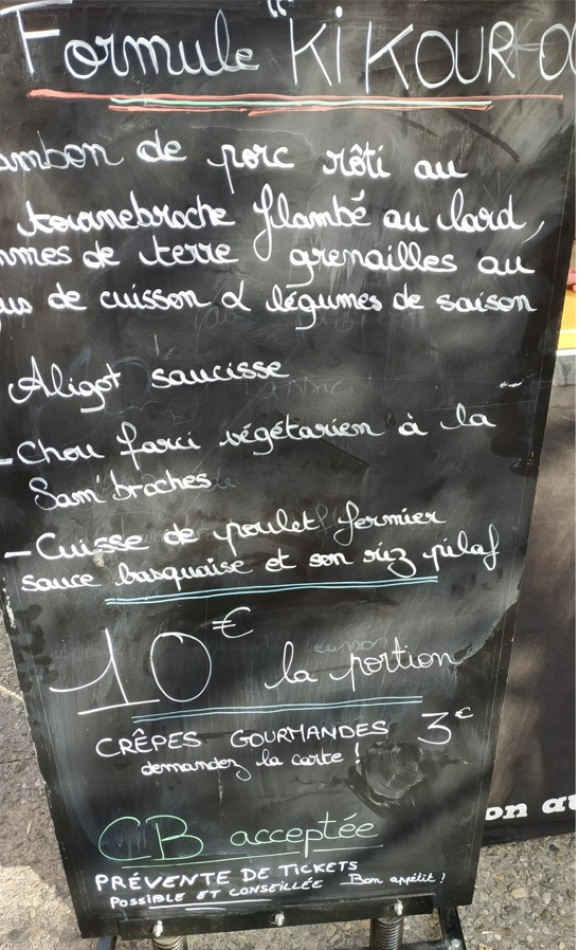 Formule "KiKOUR
ambon de porc rôti au
tournebroche flambé au lard,
mmes de terre grenailles au
us de cuisson & légumes de saison
Aligot saucisse
-Chou farci végétarien à la
Sam'broches
-Cuisse de poulet fermier
sauce basquaise et son riz pilaf
10€ la portion
CRÊPES GOURMANDES 3€
demandez la carte !
CB acceptée
PRÉVENTE DE TICKETS
POSSIBLE ET CONSEILLÉE Bon appétit !
on at